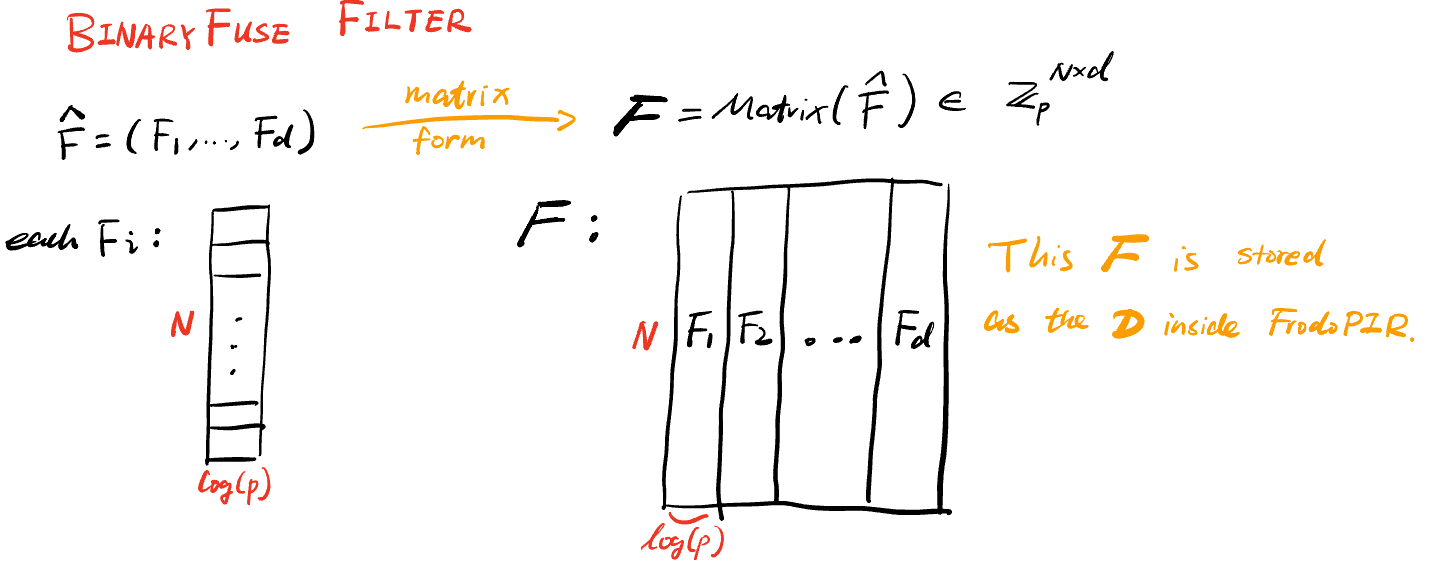 BINARY FUSE FILTER
F̂ = (F₁, ..., F_d)
matrix
form
F = Matrix(F̂) ∈ ℤ_p^{N×d}
each Fᵢ :
N
log(p)
F :
N
F₁ F₂ ... F_d
log(p)
This F is stored
as the D inside FrodoPIR.